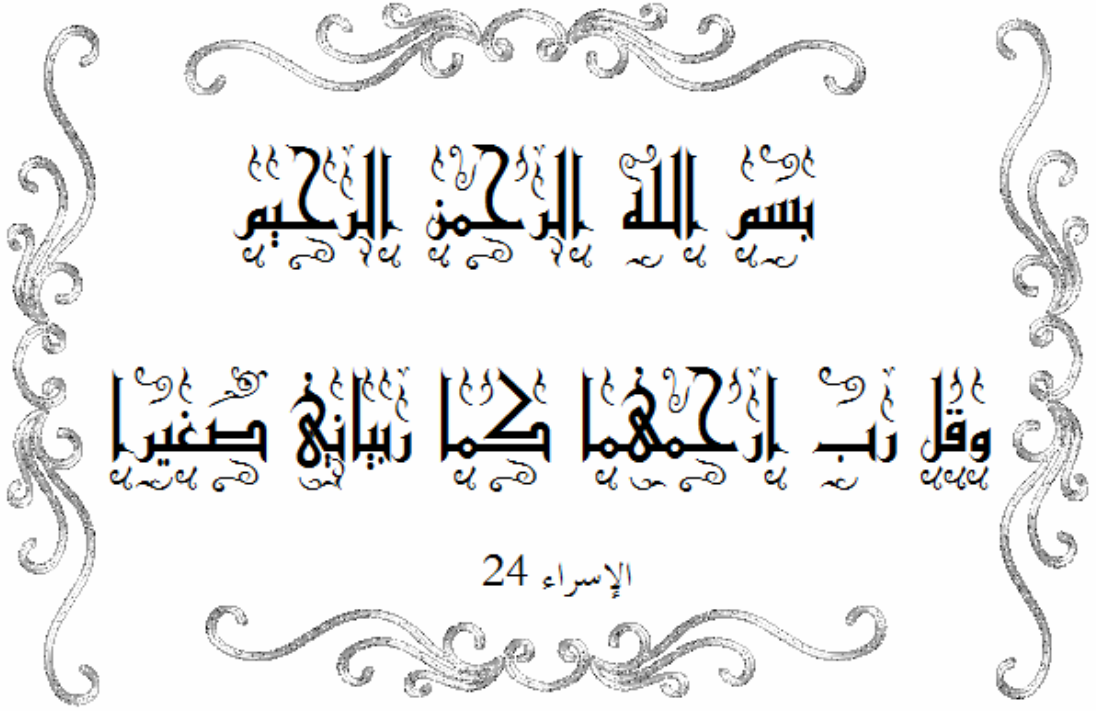 بسم الله الرحمن الرحيم
وقل رب ارحمهما كما ربياني صغيرا
الإسراء 24